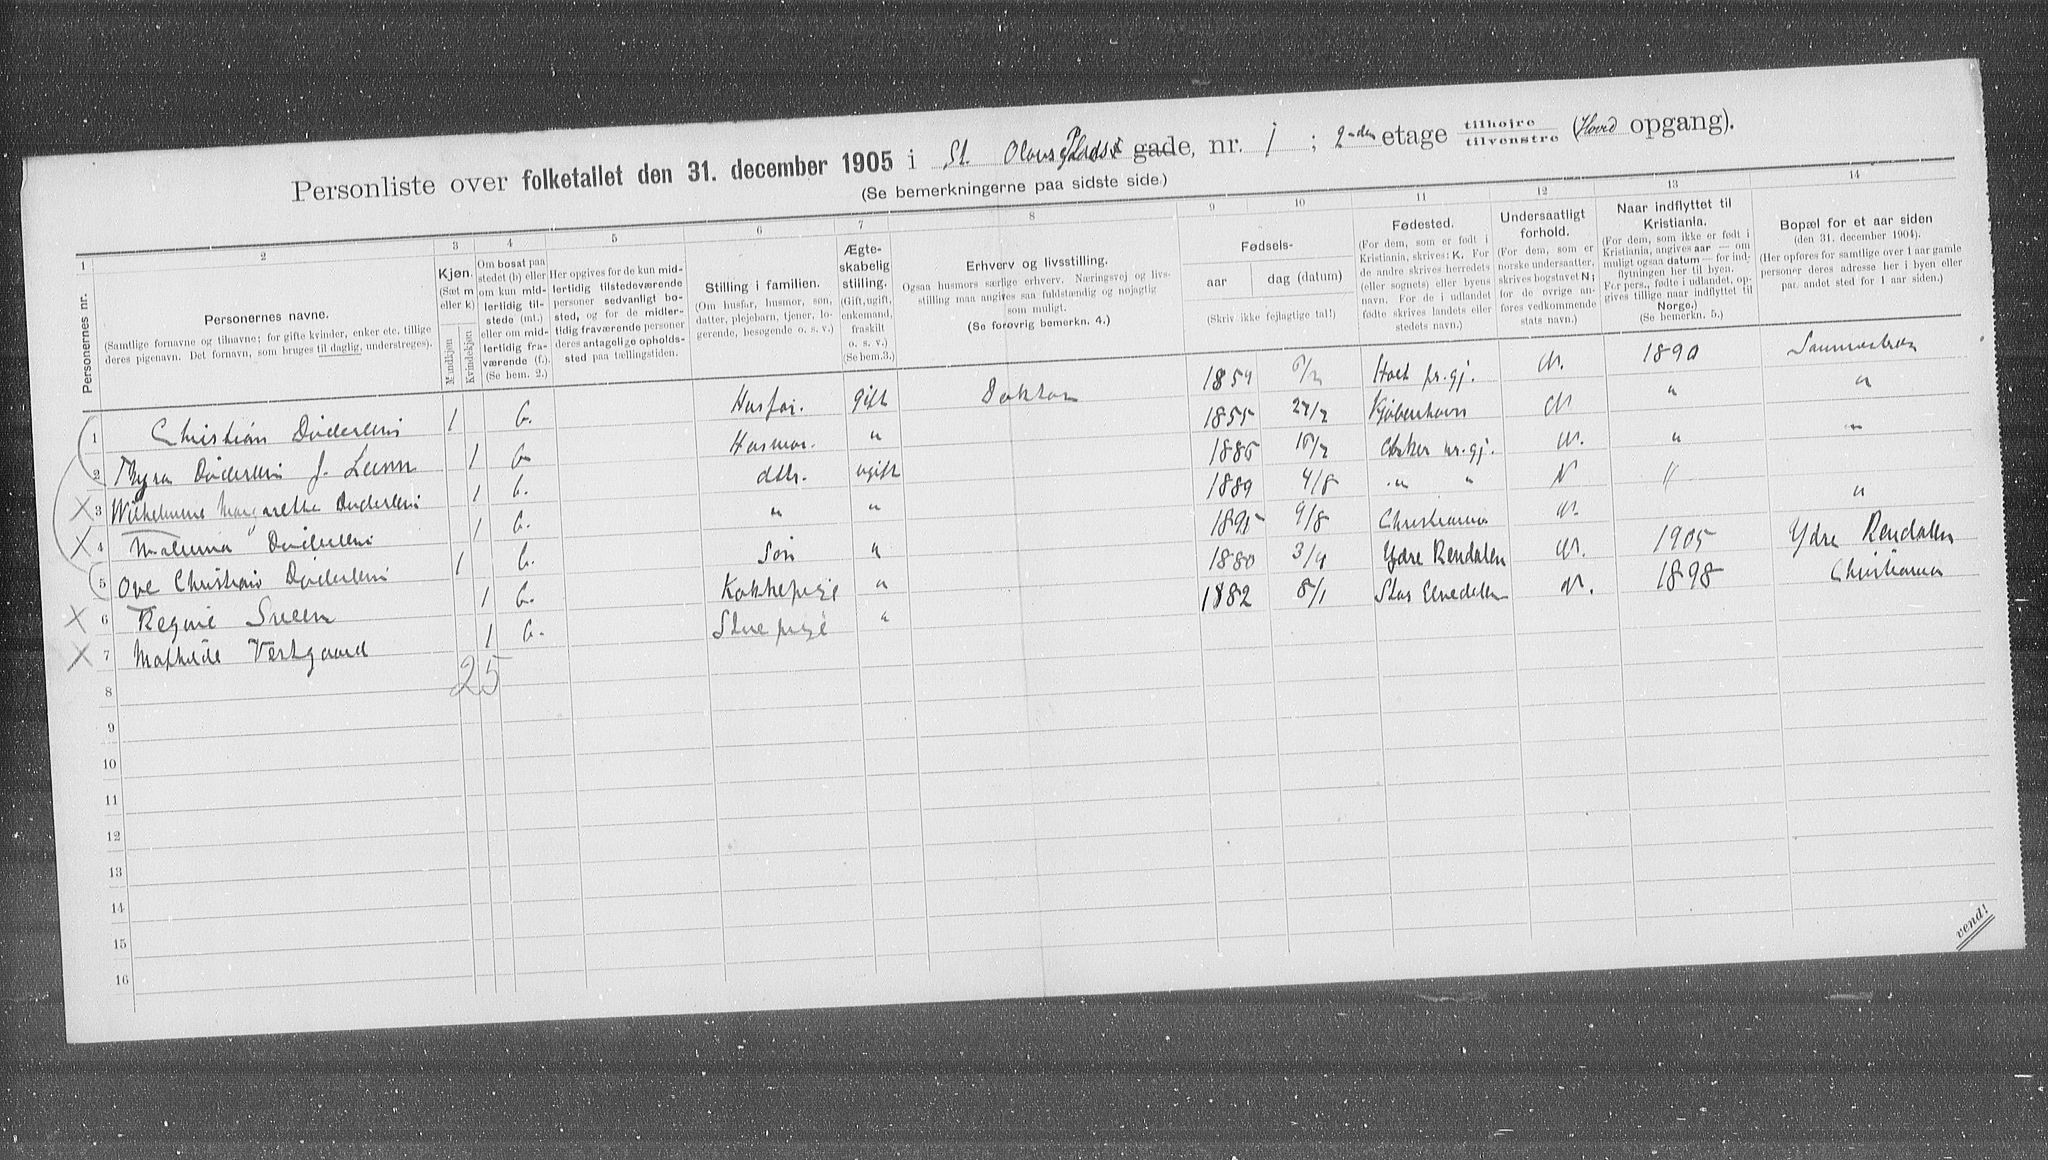 Personliste over folketallet den 31. december 1905 i St. Olavs Plads gade, nr. 1 ; 2-den etage tilhøjre tilvenstre (Hoved opgang).
(Se bemerkningerne paa sidste side.)
1 2 3 4 5 6 7 8 9 10 11 12 13 14
Personernes nr.
Personernes navne.
(Samtlige fornavne og tilnavne; for gifte kvinder, enker etc. tillige deres pigenavn. Det fornavn, som bruges til daglig, understreges).
Kjøn.
(Sæt m eller k)
Mandkjøn
Kvindekjøn
Om bosat paa stedet (b) eller om kun midlertidig tilstede (mt.) eller om midlertidig fraværende (f.). (Se bem. 2.)
Her opgives for de kun midlertidig tilstedeværende personer sedvanligt bosted, og for de midlertidig fraværende personer deres antagelige opholdssted paa tællingstiden.
Stilling i familien.
(Om husfar, husmor, søn, datter, plejebarn, tjener, logerende, besøgende o. s. v.)
Ægteskabelig stilling.
(Gift, ugift, enkemand, fraskilt o. s. v.) (Se bem.3.)
Erhverv og livsstilling.
Ogsaa husmors særlige erhverv. Næringsvej og livsstilling maa angives saa fuldstændig og nøjagtig som muligt.
(Se forøvrig bemerkn. 4.)
Fødsels-
aar
dag (datum)
(Skriv ikke fejlagtige tal!)
Fødested.
(For dem, som er født i Kristiania, skrives: K. For de andre skrives herredets (eller sognets) eller byens navn. For de i udlandet fødte skrives landets eller stedets navn.)
Undersaatligt forhold.
(For dem, som er norske undersaatter, skrives bogstavet N; for de øvrige anføres vedkommende stats navn.)
Naar indflyttet til Kristiania.
(For dem, som ikke er født i Kristiania, angives aar — om muligt ogsaa datum — for indflytningen her til byen. For pers., fødte i udlandet, opgives tillige naar indflyttet til Norge.)
(Se bemerkn. 5.)
Bopæl for et aar siden
(den 31. december 1904).
(Her opføres for samtlige over 1 aar gamle personer deres adresse her i byen eller par. andet sted for 1 aar siden.)
1 Christian Døderlein 1 b. Husfar. gift Doktor 1859 Holt pr.gj. N. 1890
2 Thyra Døderlein f. Lunn 1 b. Husmor. " 1855 27/2 Kjøbenhavn N " "
3 Wilhelmine Margarethe Døderlein 1 b. dttr. ugift 1886 Aker pr.gj. N. " "
4 Døderlein 1 b. " " 1889 4/8 " " N " "
5 Ove Christian Døderlein 1 b. Søn " 1895 9/8 Christiania N.
6 Regine Sveen 1 b. Kokkepige " 1880 3/4 Ydre Rendalen N. 1905 Ydre Rendalen
7 Mathilde Vestgaard 1 b. Stuepige " 1882 8/1 Stor Elvedalen N. 1898 Christiania
25
8
9
10
11
12
13
14
15
16
vend!